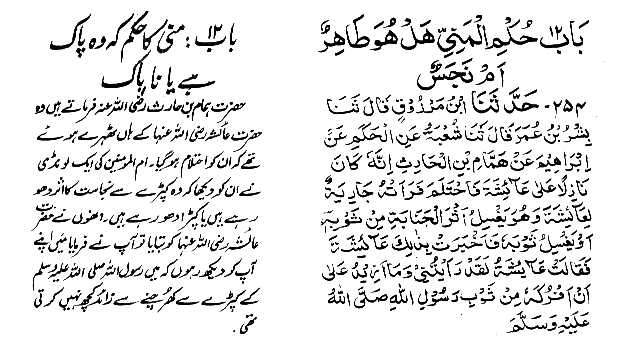 ۱۲ بَابُ حُكْمِ الْمَنِيِّ هَلْ هُوَ طَاهِرٌ
اَمْ نَجَسٌ
۲۵۴- حَدَّثَنَا ابْنُ مَرْزُوْقٍ قَالَ ثَنَا
بِشْرُ بْنُ عُمَرَ قَالَ ثَنَا شُعْبَةُ عَنِ الْحَكَمِ عَنْ
اِبْرَاهِيْمَ عَنْ هَمَّامِ بْنِ الْحَارِثِ اِنَّهٗ كَانَ
نَازِلًا عَلٰى عَائِشَةَ فَاحْتَلَمَ فَرَأَتْهُ جَارِيَةٌ
لِعَائِشَةَ وَهُوَ يَغْسِلُ اَثَرَ الْجَنَابَةِ مِنْ ثَوْبِهٖ
اَوْ يَغْسِلُ ثَوْبَهٗ فَاَخْبَرَتْ بِذٰلِكَ عَائِشَةَ
فَقَالَتْ عَائِشَةُ لَقَدْ رَاَيْتُنِيْ وَمَا اَزِيْدُ عَلٰى
اَنْ اَفْرُكَهٗ مِنْ ثَوْبِ رَسُوْلِ اللهِ صَلَّى اللهُ
عَلَيْهِ وَسَلَّمَ
باب ۱۲: منی کا حکم کہ وہ پاک
ہے یا ناپاک
حضرت ہمام بن حارث رضی اللہ عنہ فرماتے ہیں وہ
حضرت عائشہ رضی اللہ عنہا کے ہاں ٹھہرے ہوئے
تھے کہ ان کو احتلام ہوگیا۔ ام المومنین کی ایک لونڈی
نے ان کو دیکھا کہ وہ کپڑے سے نجاست کا اثر دھو
رہے ہیں یا کپڑا دھو رہے ہیں۔ انھوں نے حضرت
عائشہ رضی اللہ عنہا کو بتایا تو آپ نے فرمایا میں اپنے
آپ کو دیکھ رہی ہوں کہ میں رسول اللہ صلی اللہ علیہ وسلم
کے کپڑے سے کھرچنے سے زائد کچھ نہیں کرتی
تھی۔